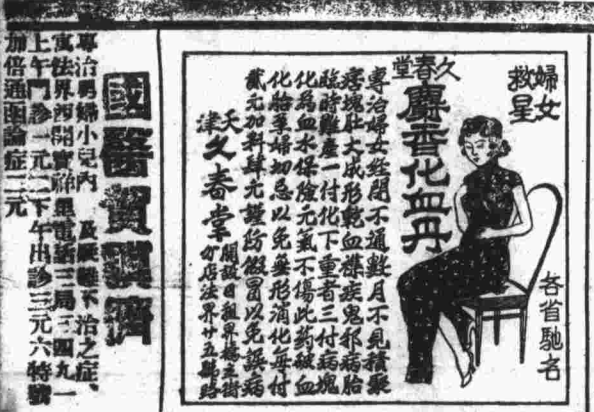 婦女
救星
各省馳名
久春堂
麝香化血丹
專治婦女經閉不通數月不見積聚
痞塊肚大成形乾血襟疾鬼邪病胎
臨時難產一付化下重者三付病塊
化為血水保險元氣不傷此藥破血
化胎孕婦切忌以免無形消化每付
貳元加料肆元謹防假冒以免誤病
天津
久春堂
開設日租界橋立街
分店法界廿五號路
國醫賀濟
專治男婦小兒內 及疑難不治之症、
寓法界西開寶里電話三局三四九一
上午門診一元二下午出診三元六特號
加倍通函論症二元